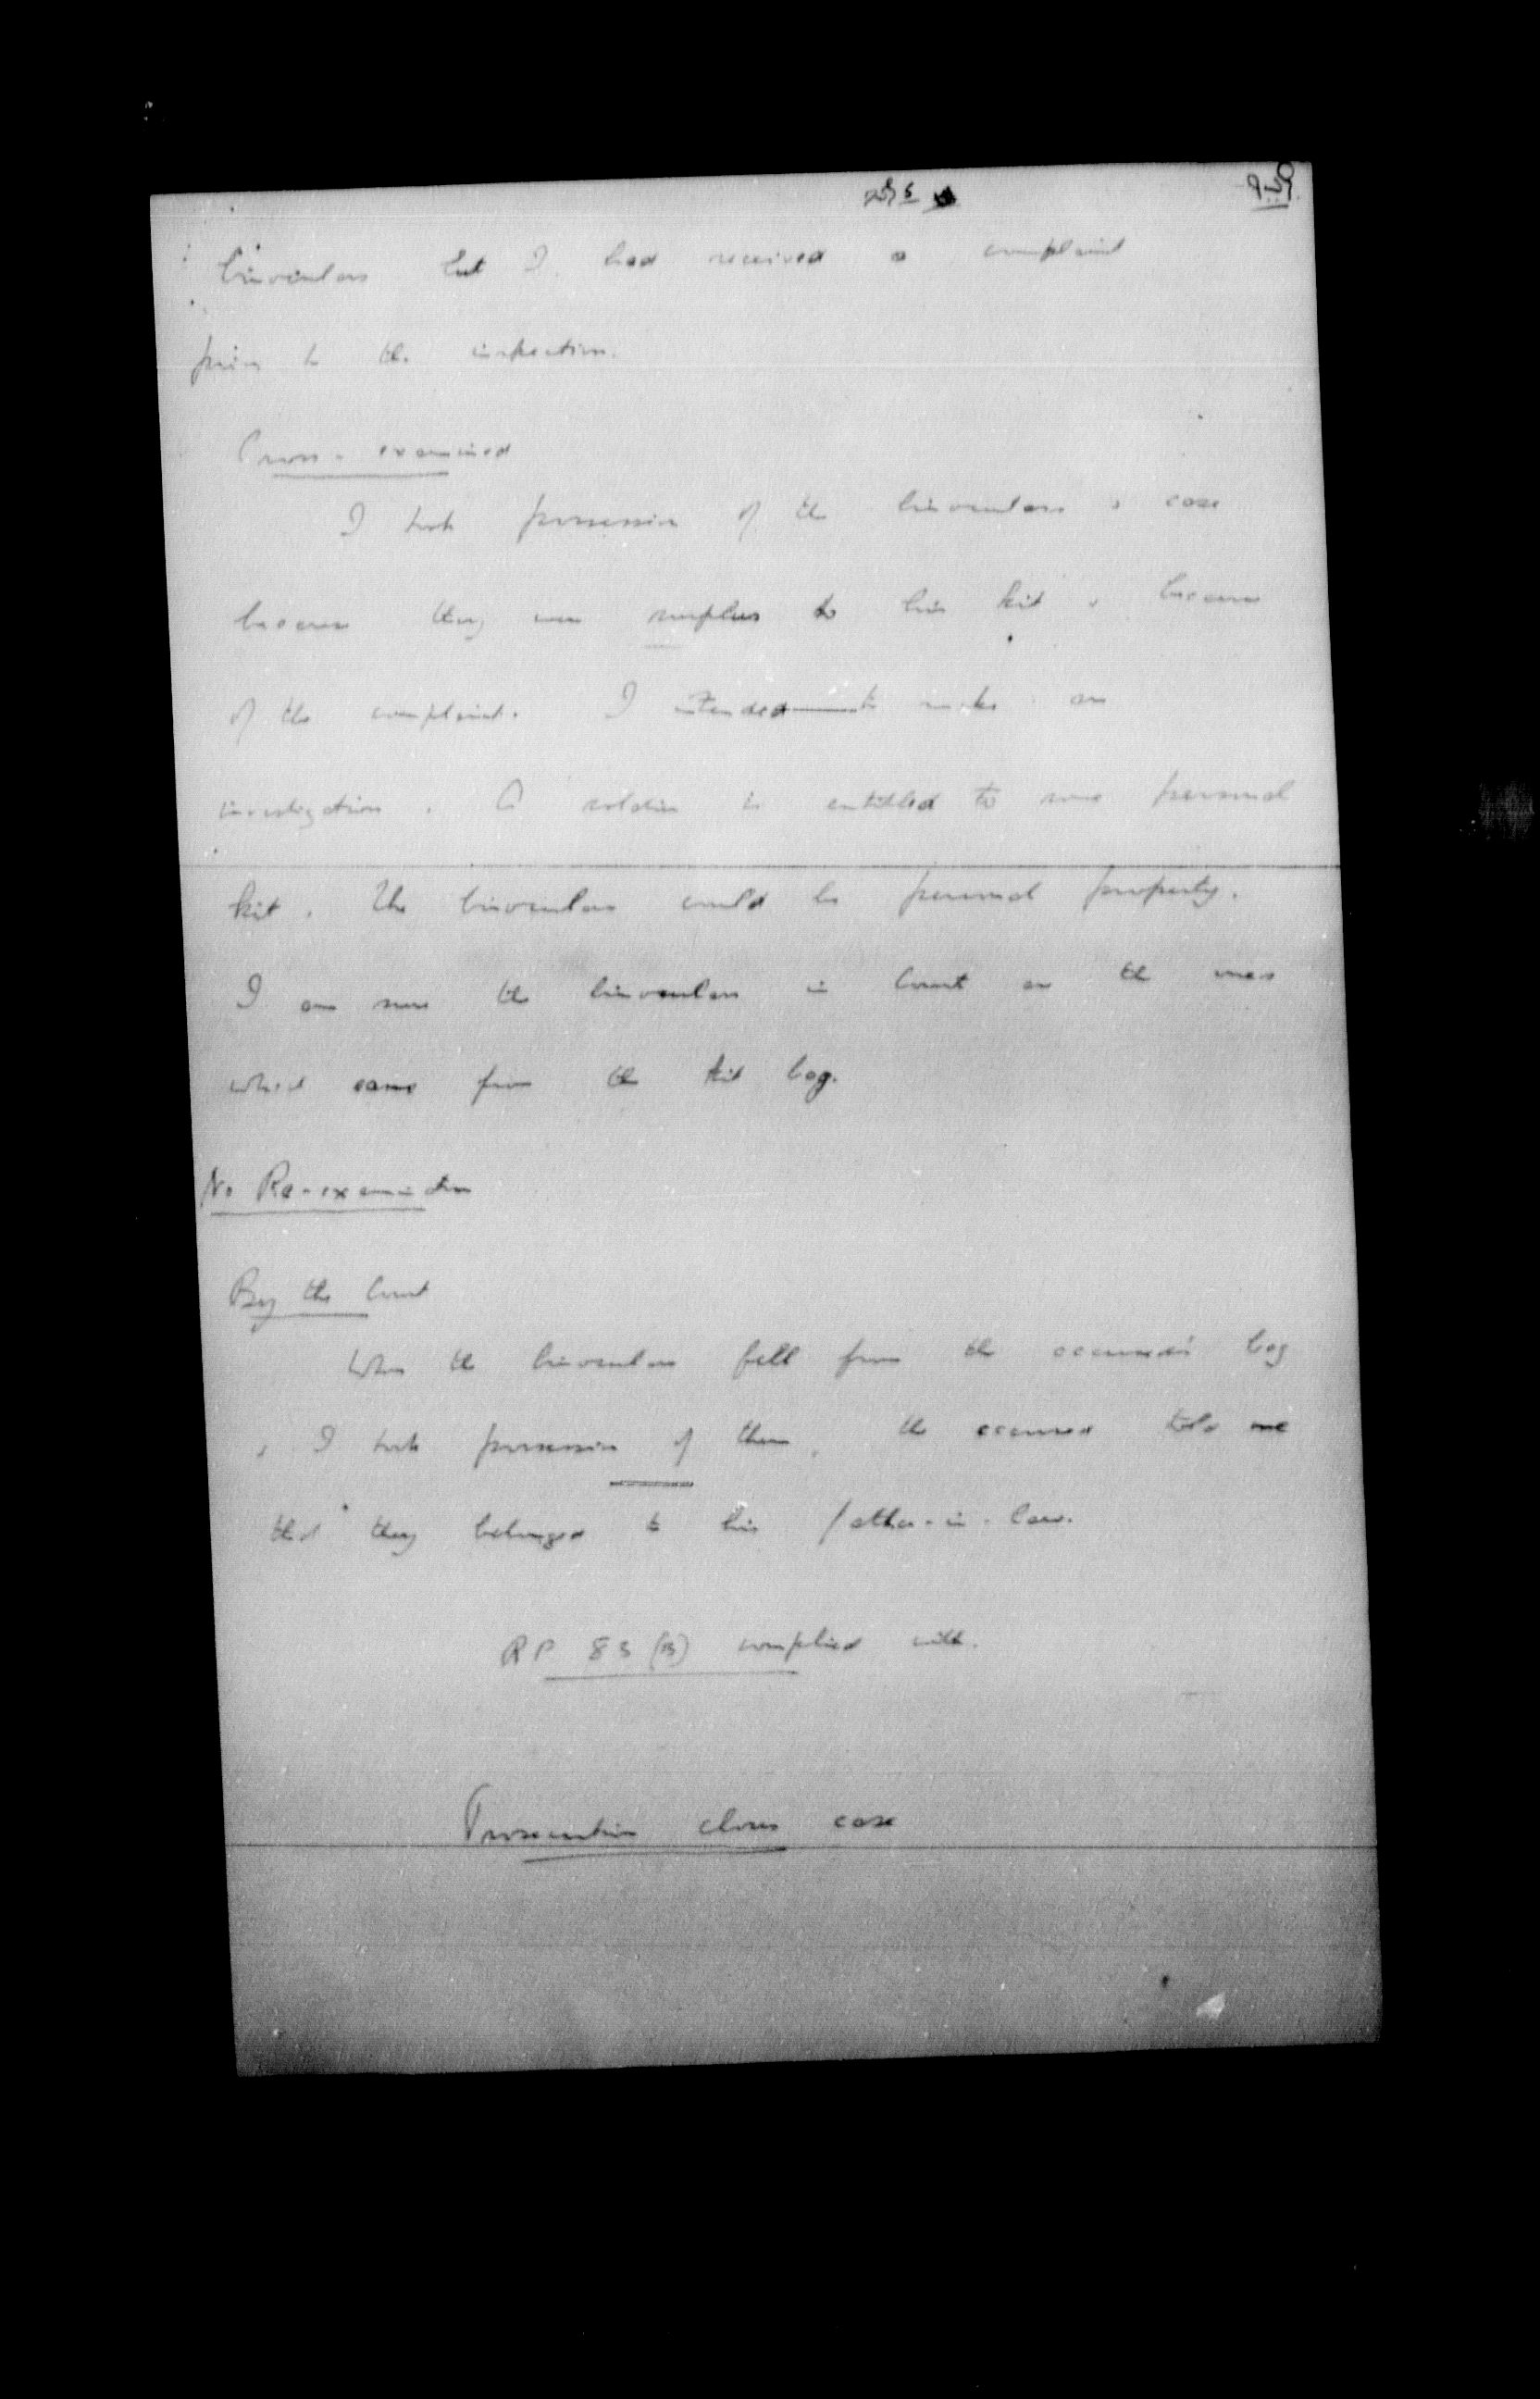 binoculars but I had received a complaint
prior to the inspection.
Cross-examined
I took possession of the binoculars & case
because they were surplus to his kit & because
of the complaint. I intended to make an
investigation. A soldier is entitled to some personal
kit. The binoculars could be personal property.
I am sure the binoculars in Court are the ones
which came from the kit bag.
No Re-examination
By the Court
When the binoculars fell from the accused's bag
& I took possession of them, the accused told me
that they belonged to his father-in-law.
RP 83 (B) complied with.
Prosecution closes case